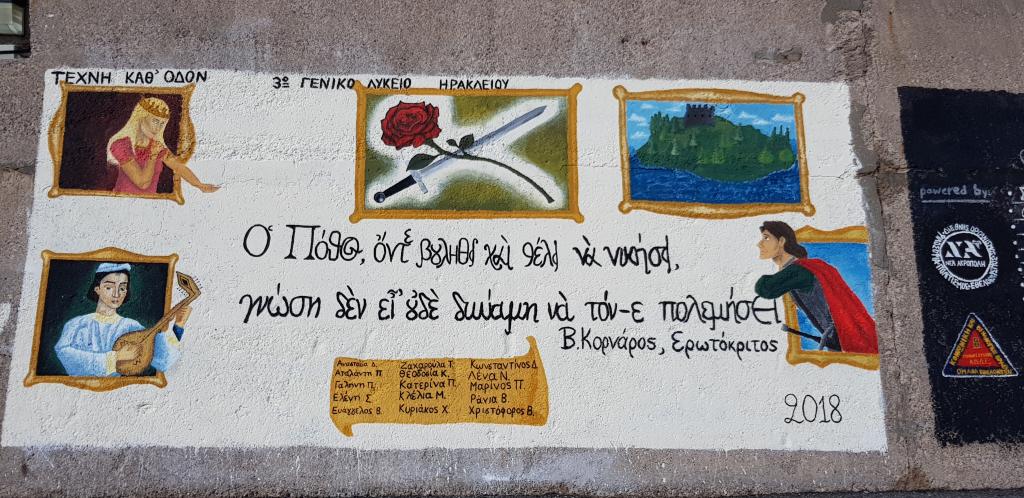 ΤΕΧΝΗ ΚΑΘ' ΟΔΟΝ
3º ΓΕΝΙΚΟ ΛΥΚΕΙΟ ΗΡΑΚΛΕΙΟΥ
Ο Πόθος, όντε βουληθεί και θέλει να νικήσει,
γνώση δεν είν' ουδέ δύναμη να τόν-ε πολεμήσει
Β.Κορνάρος, Ερωτόκριτος
Αναστασία Δ.
Αταλάντη Π.
Γαλήνη Π.
Ελένη Σ.
Ευάγγελος Β.
Ζαχαρούλα Τ.
Θεοδοσία Κ.
Κατερίνα Π.
Κλέλια Μ.
Κυριάκος Χ.
Κωνσταντίνος Δ.
Λένα Ν.
Μαρίνος Π.
Ράνια Β.
Χριστόφορος Β.
2018
powered by:
ΝΕΑ ΑΚΡΟΠΟΛΗ
ΟΜΑΔΑ ΕΘΕΛΟΝΤΩΝ